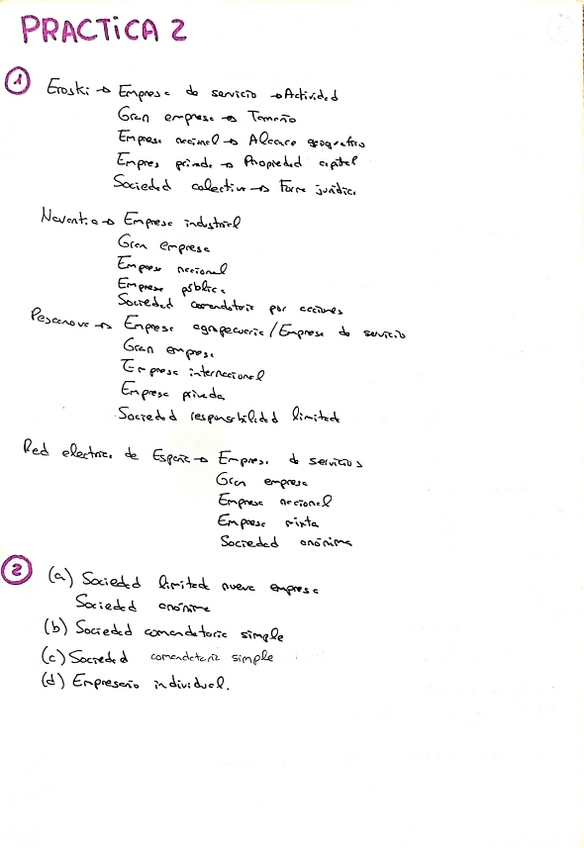 PRACTICA 2
1 Eroski → Empresa de servicio → Actividad
Gran empresa → Tamaño
Empresa nacional → Alcance geografico
Empresa privada → Propiedad capital
Sociedad colectiva → Forma jurídica
Naventia → Empresa industrial
Gran empresa
Empresa nacional
Empresa pública
Sociedad comanditaria por acciones
Pescanova → Empresa agropecuaria / Empresa de servicio
Gran empresa
Empresa internacional
Empresa privada
Sociedad responsabilidad limitada
Red electrica de España → Empresa de servicios
Gran empresa
Empresa nacional
Empresa mixta
Sociedad anónima
2 (a) Sociedad limitada nueva empresa
Sociedad anónima
(b) Sociedad comandataria simple
(c) Sociedad comandataria simple
(d) Empresario individual.